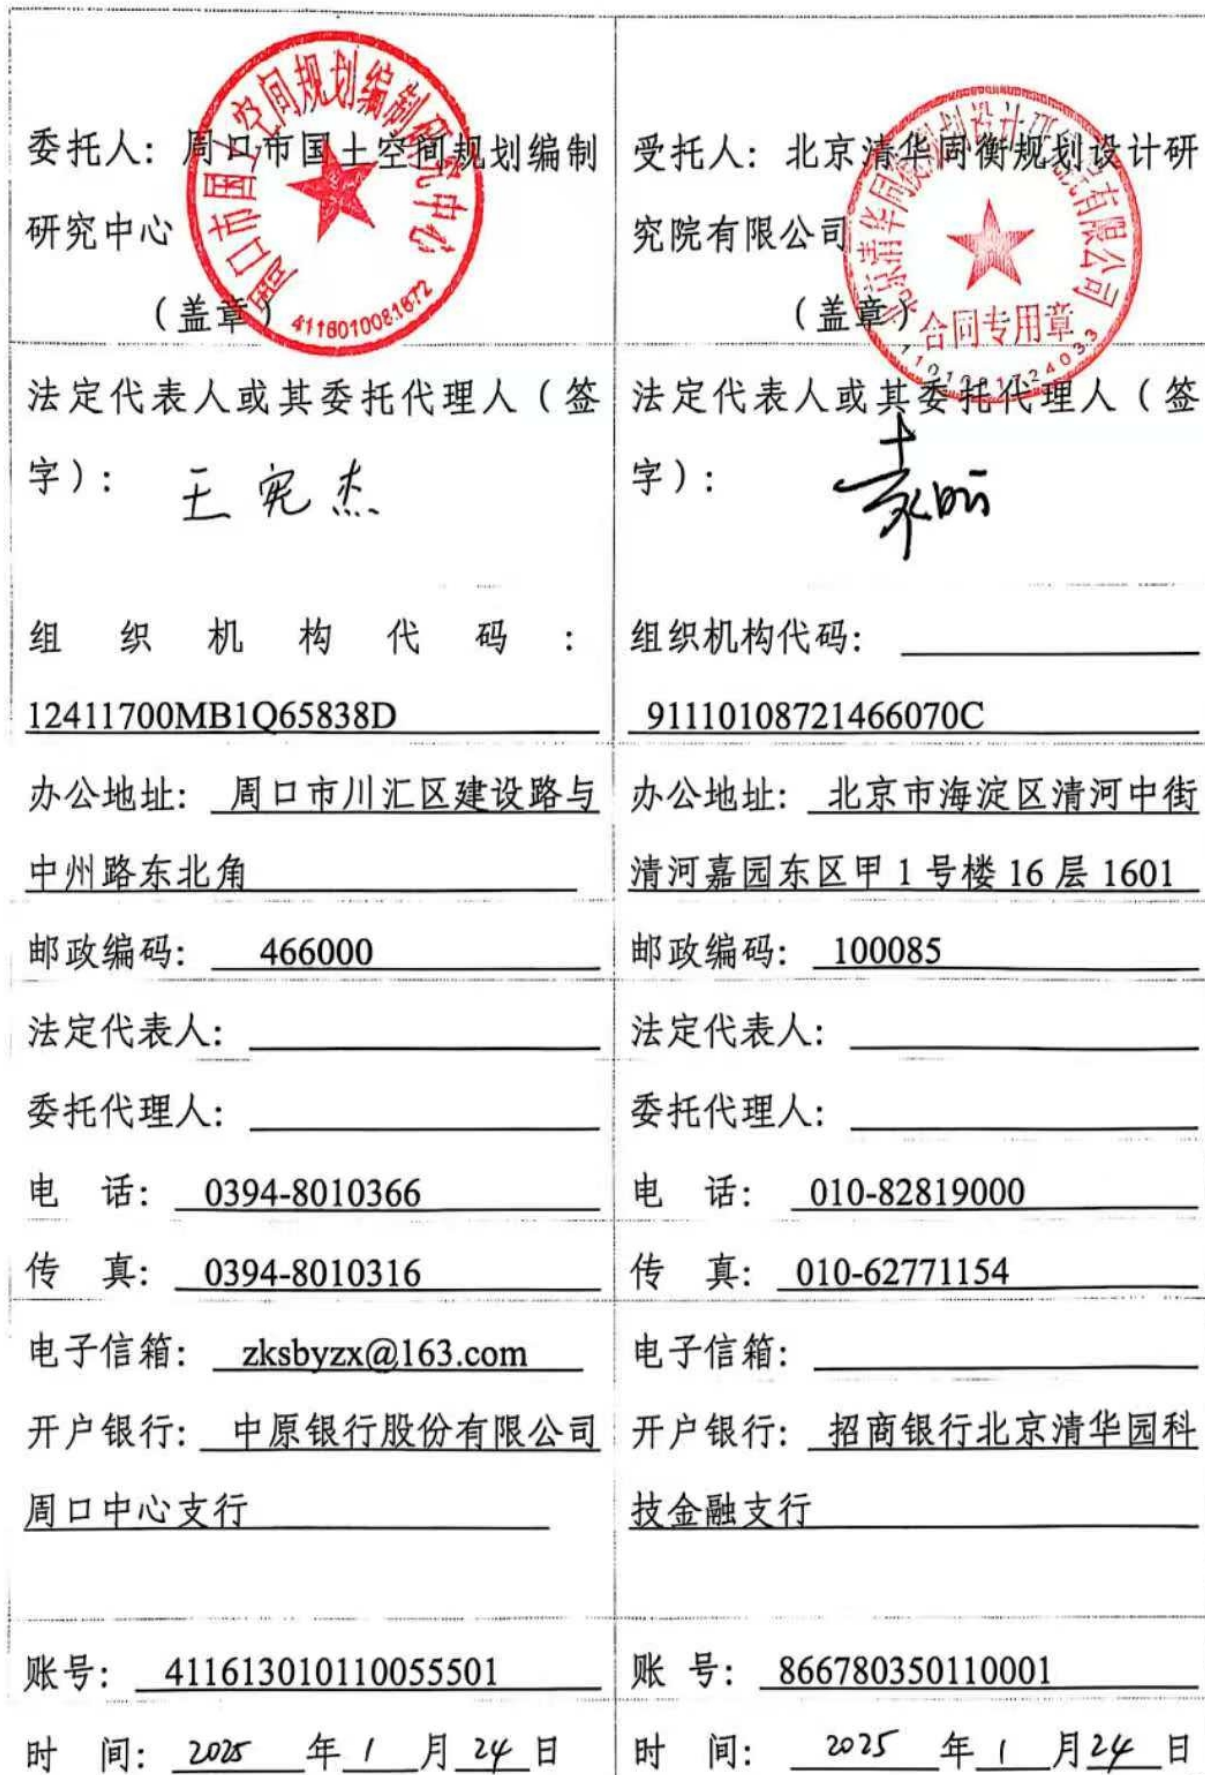 委托人：周口市国土空间规划编制
研究中心
（盖章）
周口市国土空间规划编制研究中心
4116010081672
法定代表人或其委托代理人（签
字）：王宪杰
组织机构代码：
12411700MB1Q65838D
办公地址：周口市川汇区建设路与
中州路东北角
邮政编码：466000
法定代表人：
委托代理人：
电 话：0394-8010366
传 真：0394-8010316
电子信箱：zksbyzx@163.com
开户银行：中原银行股份有限公司
周口中心支行
账号：411613010110055501
时 间：2025年1月24日
受托人：北京清华同衡规划设计研
究院有限公司
（盖章）
北京清华同衡规划设计研究院有限公司
合同专用章
法定代表人或其委托代理人（签
字）：
组织机构代码：
91110108721466070C
办公地址：北京市海淀区清河中街
清河嘉园东区甲1号楼16层1601
邮政编码：100085
法定代表人：
委托代理人：
电 话：010-82819000
传 真：010-62771154
电子信箱：
开户银行：招商银行北京清华园科
技金融支行
账 号：866780350110001
时 间：2025年1月24日